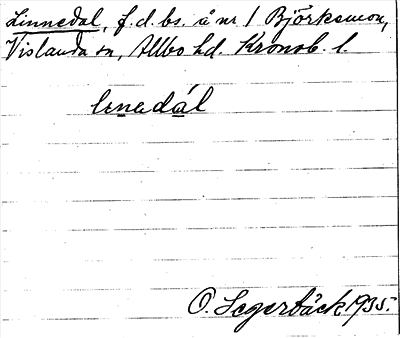 Linnedal, f.d. bs. å nr 1 Björksmon,
Vislanda sn, Allbo hd. Kronob. l.
lenedál
O. Segerbäck 1935.